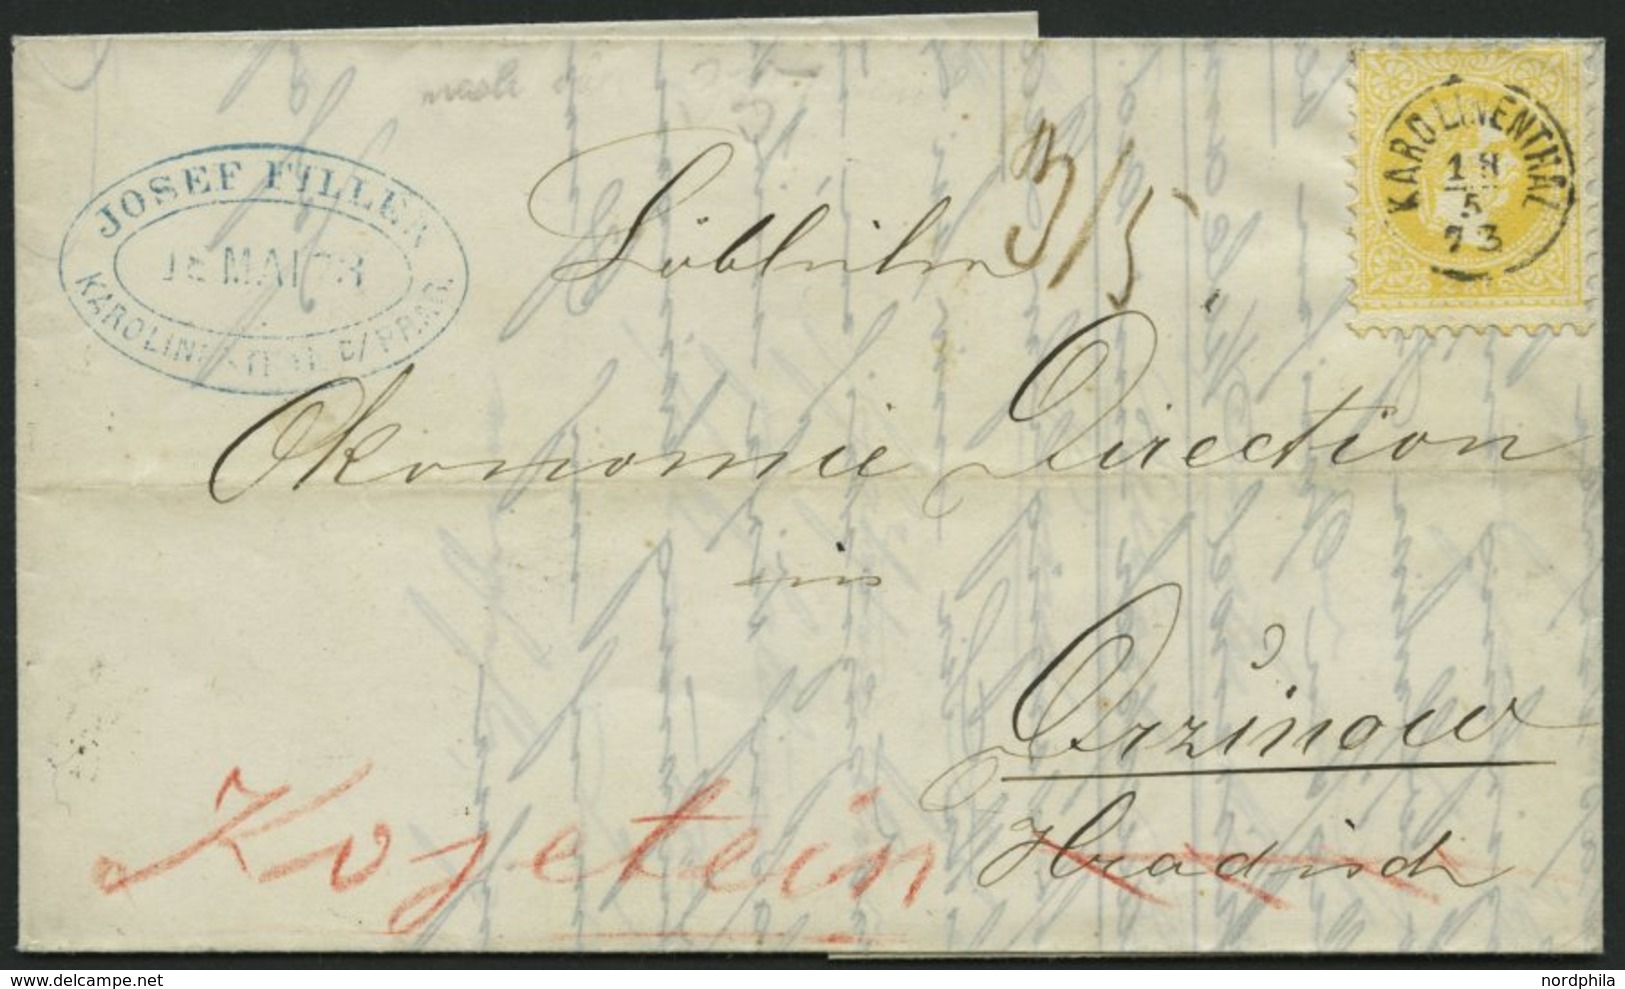 JOSEF FILLER
MAI 73
KAROLINENTHAL B/ PRAG.
KAROLINENTHAL
18
5
73
3/5
Löbliche
Ökonomie Direction
in
Orzinow
Hradisch
Kojetein
www.philasearch.com
nordphila